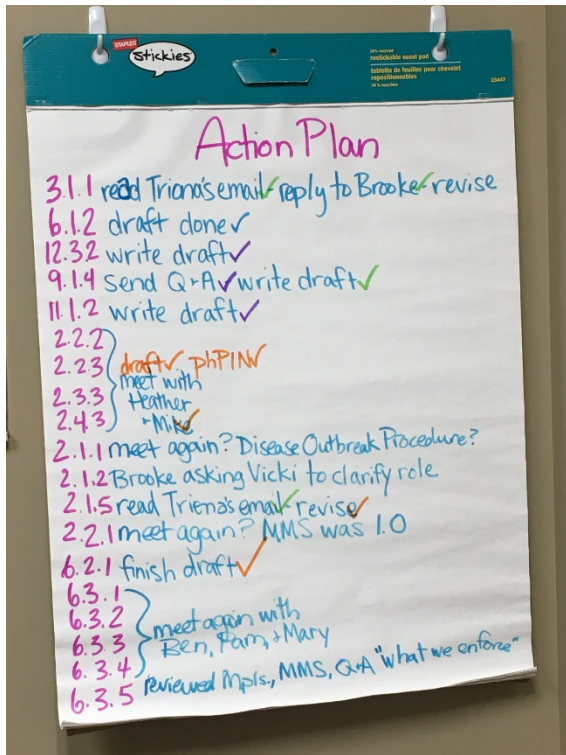 STAPLES
stickies
20% recycled
restickable easel pad
tablette de feuilles pour chevalet
repositionnables
20 % recyclées
23447
Action Plan
3.1.1 read Triona's email✓ reply to Brooke✓ revise
6.1.2 draft done✓
12.3.2 write draft✓
9.1.4 send Q+A✓ write draft✓
11.1.2 write draft✓
2.2.2
2.2.3 draft✓, phPIN✓
meet with
2.3.3 Heather
2.4.3 + Mike✓
2.1.1 meet again? Disease Outbreak Procedure?
2.1.2 Brooke asking Vicki to clarify role
2.1.5 read Triona's email✓ revise✓
2.2.1 meet again? MMS was 1.0
6.2.1 finish draft✓
6.3.1
6.3.2 meet again with
6.3.3 Ben, Pam, + Mary
6.3.4
6.3.5 reviewed Mpls., MMS, Q+A "what we enforce"